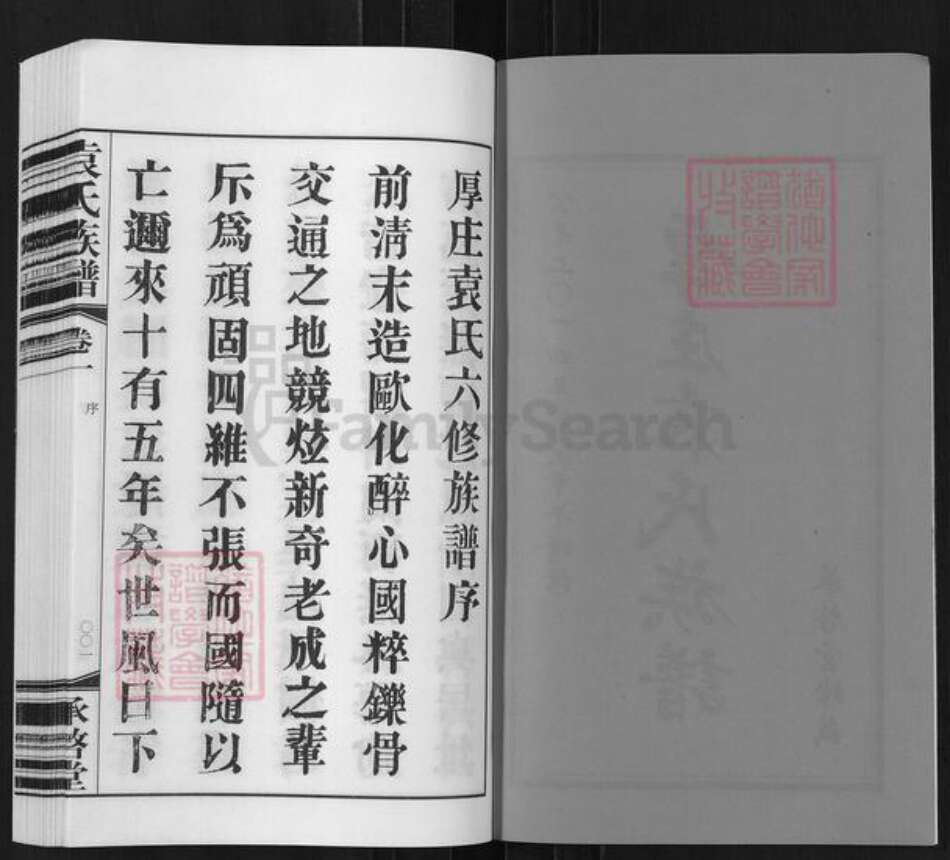 厚庄袁氏六修族譜序
前淸末造歐化醉心國粹鑠骨
交通之地競炫新奇老成之輩
斥爲頑固四維不張而國隨以
亡邇來十有五年矣世風日下
袁氏族譜
卷一
序
〇〇一
承啓堂
FamilySearch
譜學會
收藏